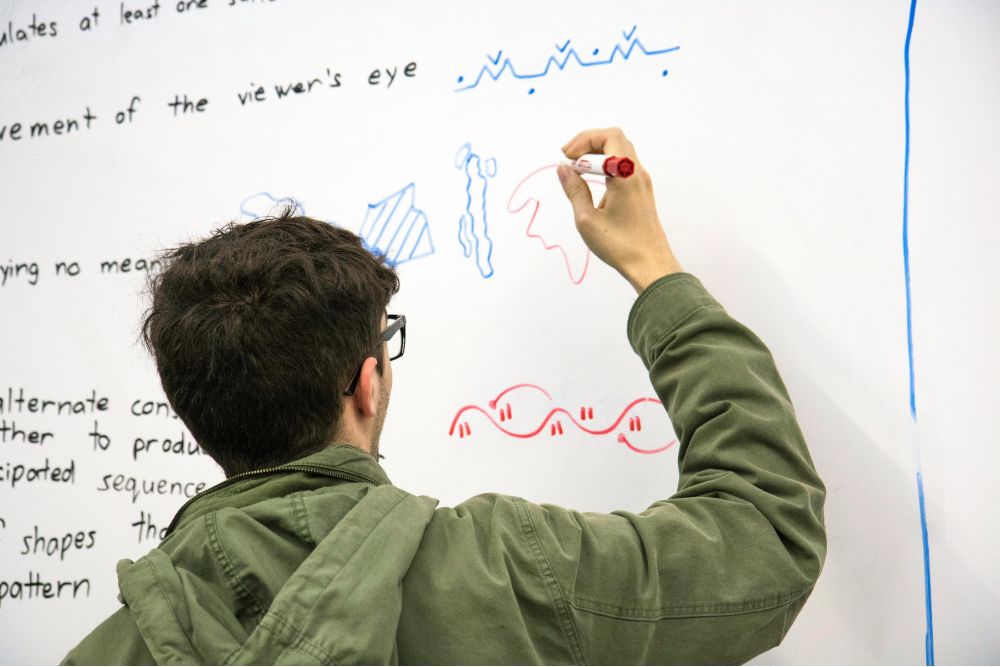 ulates at least one
vement of the viewer's eye
ying no mean
alternate con
ther to produ
cipated sequence
shapes
pattern